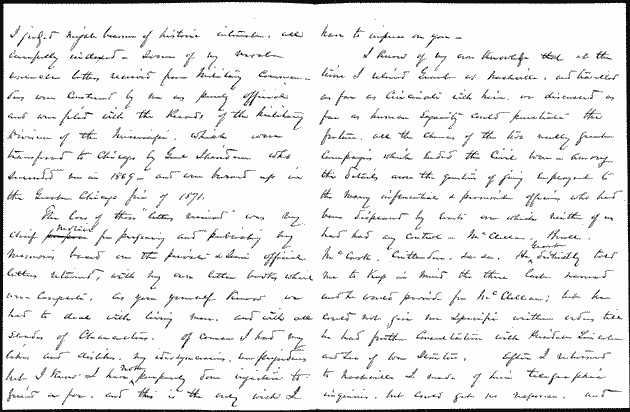 I judged might become of historic interest. all
carefully indexed. Some of my
letters received from Military Comman-
ders were construed by me as purely official
and were filed with the Records of the Military
Division of the Mississippi. which were
transferred to Chicago by Genl Sheridan who
succeeded me in 1869 - and were burned up in
the Great Chicago fire of 1871.
The loss of these "letters received" was my
chief motive for preparing and publishing my
Memoirs based on the private & Semi official
letters retained, with my own letter books which
were complete. As you yourself know we
had to deal with living men. and with all
sorts of Characters. of course I had my
likes and dislikes. my idiosyncrasies.
but I know I have not purposely done injustice to
friend or foe. and this is the only wish I
have to impress on you -
I know of my own Knowledge that at the
time I relieved Grant at Nashville. and travelled
as far as Cincinnati with him. we discussed as
far as human Sagacity could penetrate the
future. all the chances of the two really great
Campaigns which ended the Civil War - among
the details was the question of giving employment to
the many influential & prominent officers who had
been displaced by causes over which neither of us
had had any control - McClellan. Buell.
McCook. Crittenden. &c &c. He, Grant distinctly told
me to Keep in mind the three last named
and he would provide for McClellan; but he
could not give me specific written orders till
he had further Consultation with President Lincoln
and Sec of War Stanton. After I returned
to Nashville I made of him telegraphic
inquiries. but could get no response. and